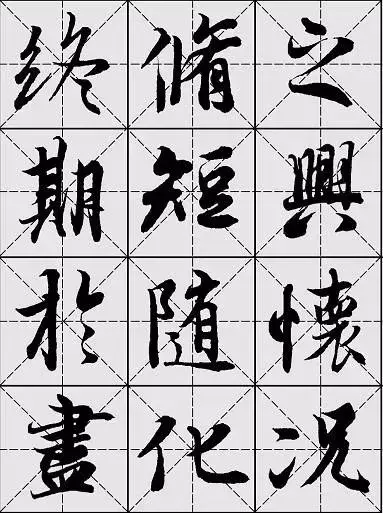 之興懷况
脩短随化
終期於盡